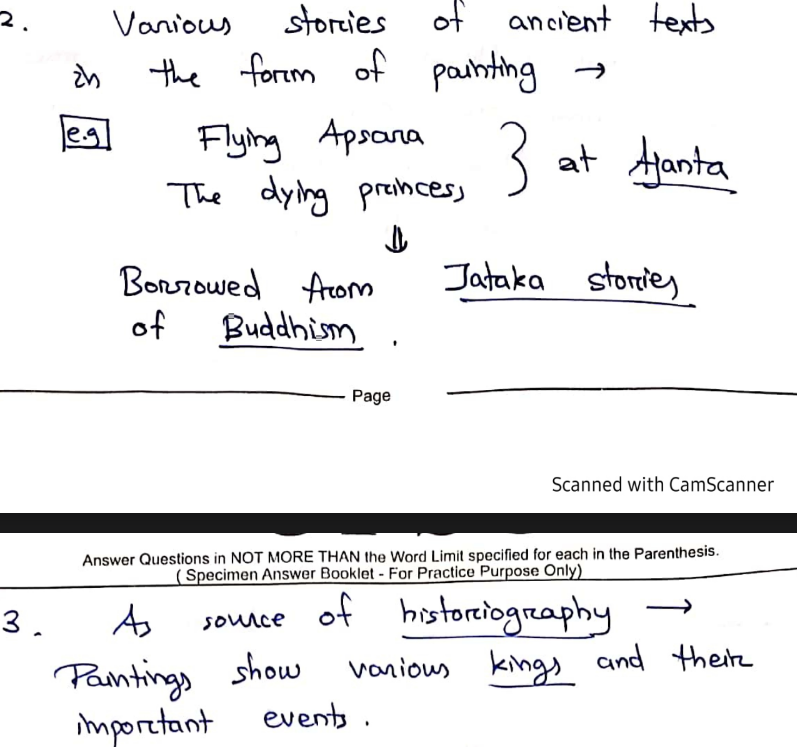 2. Various stories of ancient texts
in the form of painting →
e.g Flying Apsara
The dying princess } at Ajanta
⇓
Borrowed from Jataka stories
of Buddhism.
Page
Scanned with CamScanner
Answer Questions in NOT MORE THAN the Word Limit specified for each in the Parenthesis.
( Specimen Answer Booklet - For Practice Purpose Only)
3. As source of historiography →
Paintings show various kings and their
important events.